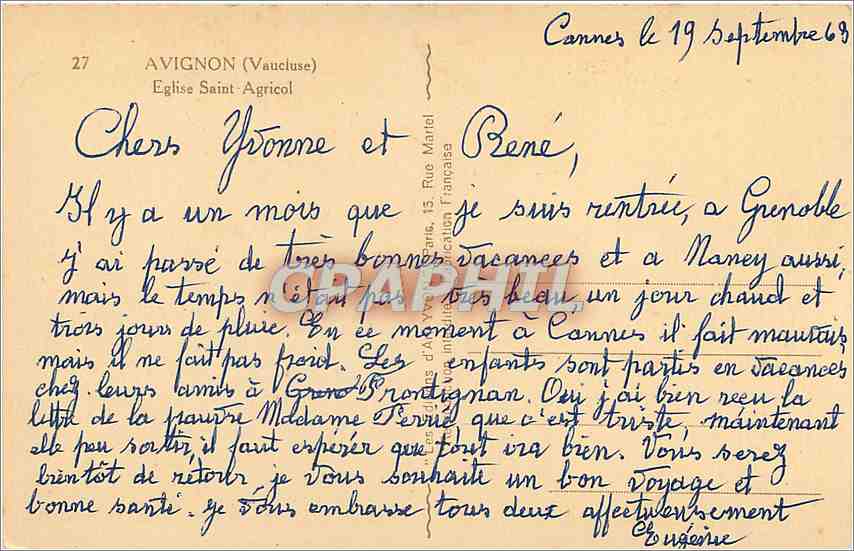 Cannes le 19 Septembre 63
27 AVIGNON (Vaucluse)
Eglise Saint-Agricol
Chers Yvonne et René,
Il y a un mois que je suis rentrée, a Grenoble
j'ai passé de très bonnes vacances et a Nancy aussi,
mais le temps n'était pas très beau, un jour chaud et
trois jours de pluie. En ce moment à Cannes il fait mauvais
mais il ne fait pas froid. Les enfants sont partis en vacances
chez leurs amis à Frontignan. Oui j'ai bien reçu la
lettre de la pauvre Madame Perrié que c'est triste, maintenant
elle peu sortir, il faut espérer que tout ira bien. Vous serez
bientôt de retour, je vous souhaite un bon voyage et
bonne santé. je vous embrasse tous deux affectueusement
Eugénie
"Les Editions d'Art Yv Paris, 15, Rue Martel
interdite Fabrication Française
CPAPHIL